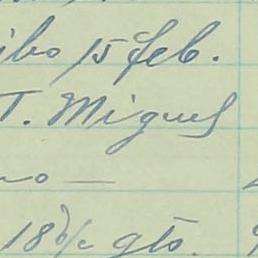 ibo 15 feb.
T. Miguel
no —
18 % gtos.